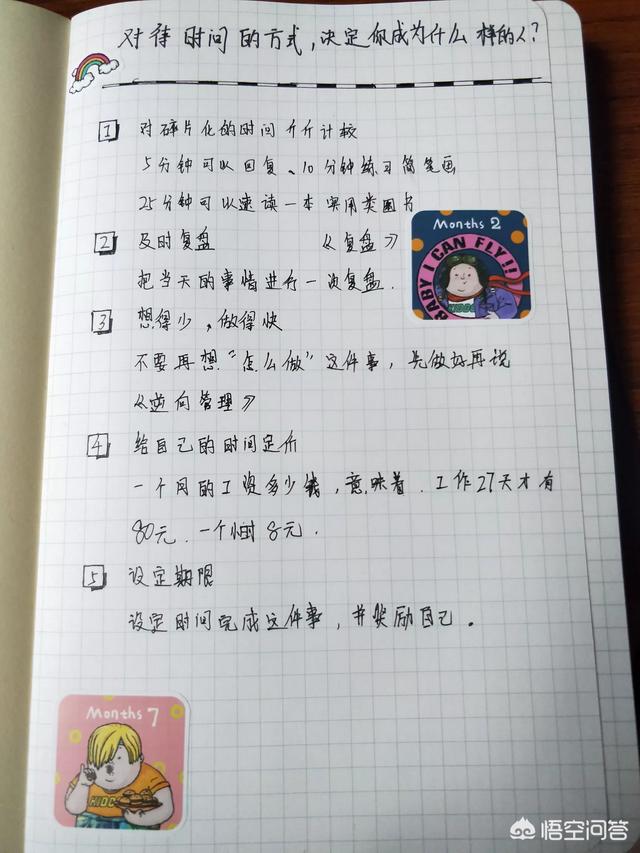 对待时间的方式,决定你成为什么样的人?
1 对碎片化的时间斤斤计较
5分钟可以回复、10分钟练习简笔画
25分钟可以速读一本实用类图书
2 及时复盘 《复盘》
Months 2
BABY I CAN FLY!!
把当天的事情进行一次复盘.
3 想得少,做得快
不要再想"怎么做"这件事,先做好再说
《逆向管理》
4 给自己的时间定价
一个月的工资多少钱,意味着.工作27天才有
80元.一个小时8元.
5 设定期限
设定时间完成这件事,并奖励自己。
Months 7
KIDO
悟空问答